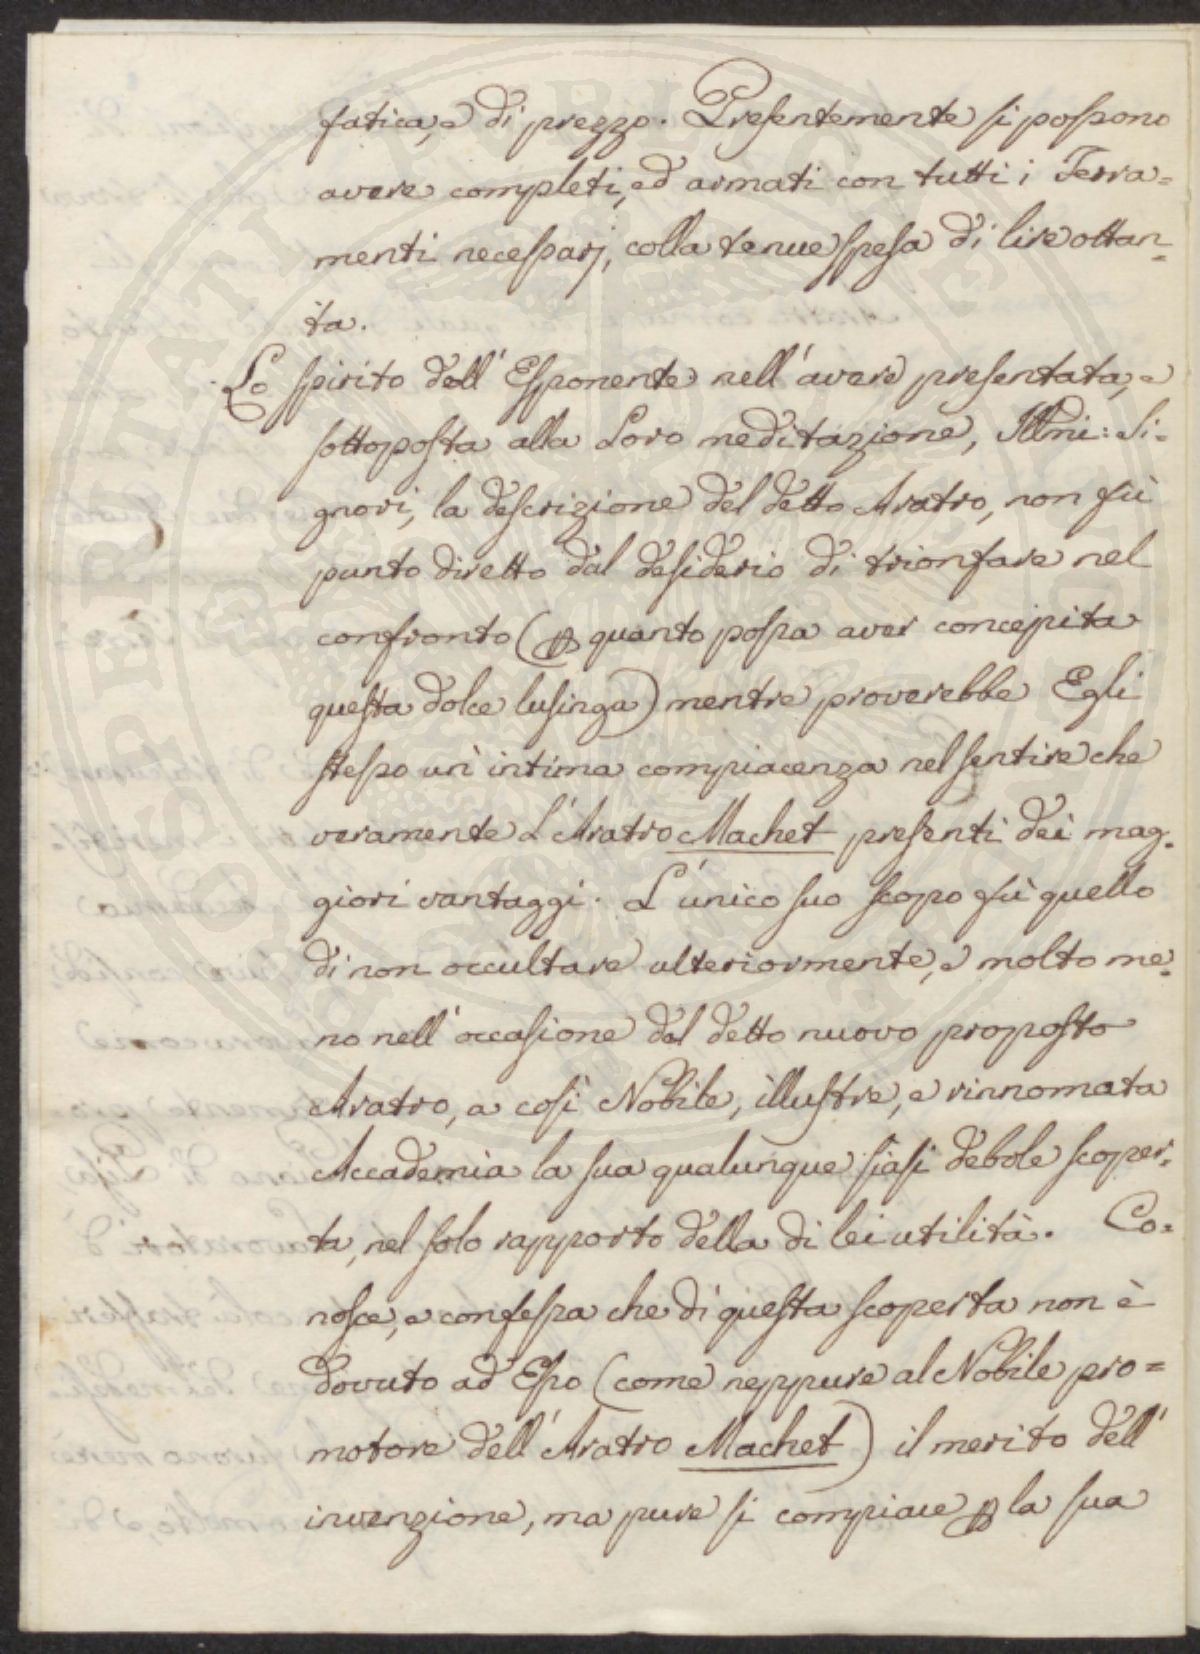 fatica, e di prezzo. Presentemente si possono
avere completi, ed armati con tutti i Ferra=
menti necessarj, colla tenue spesa di lire ottan=
ta.
Lo spirito dell' Esponente nell' avere presentata, e
sottoposta alla Loro meditazione, Illmi: Si=
gnori, la descrizione del detto Aratro, non fù
punto diretto dal desiderio di trionfare nel
confronto (p quanto possa aver concepita
questa dolce lusinga) mentre proverebbe Egli
stesso un' intima compiacenza nel sentire che
veramente l'Aratro Machet presenti dei mag=
giori vantaggi. L' unico suo scopo fù quello
di non occultare ulteriormente, e molto me=
no nell' occasione del detto nuovo proposto
Aratro, a così Nobile, illustre, e rinnomata
Accademia la sua qualunque siasi debole scoper=
ta, nel solo rapporto della di lei utilità. Co=
nosce, e confessa che di questa scoperta non è
dovuto ad Esso (come neppure al Nobile pro=
motore dell' Aratro Machet) il merito dell'
invenzione, ma pure si compiace p la sua
PROSPERITATI PUBLICAE AUGENDAE